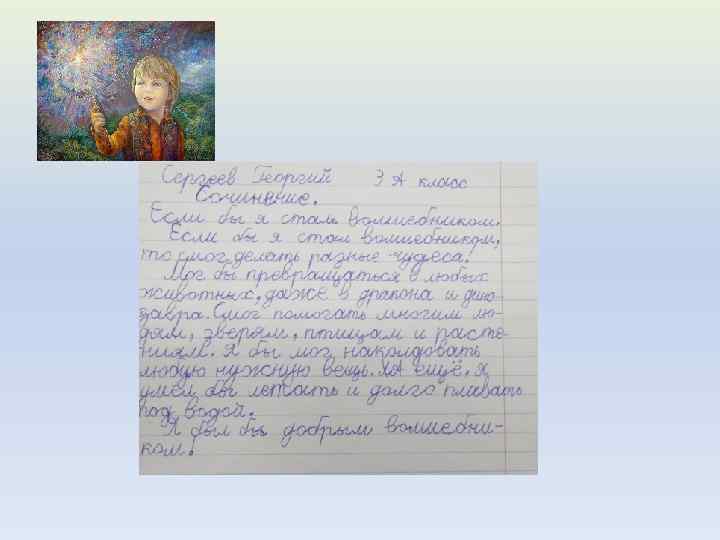 Сергеев Георгий 3 А класс
Сочинение.
Если бы я стал волшебником.
Если бы я стал волшебником,
то смог делать разные чудеса!
Мог бы превращаться в любых
животных, даже в дракона и дино-
завра. Смог помогать многим лю-
дям, зверям, птицам и расте-
ниям. Я бы мог наколдовать
любую нужную вещь. А ещё, я
умел бы летать и долго плавать
под водой.
Я был бы добрым волшебни-
ком!